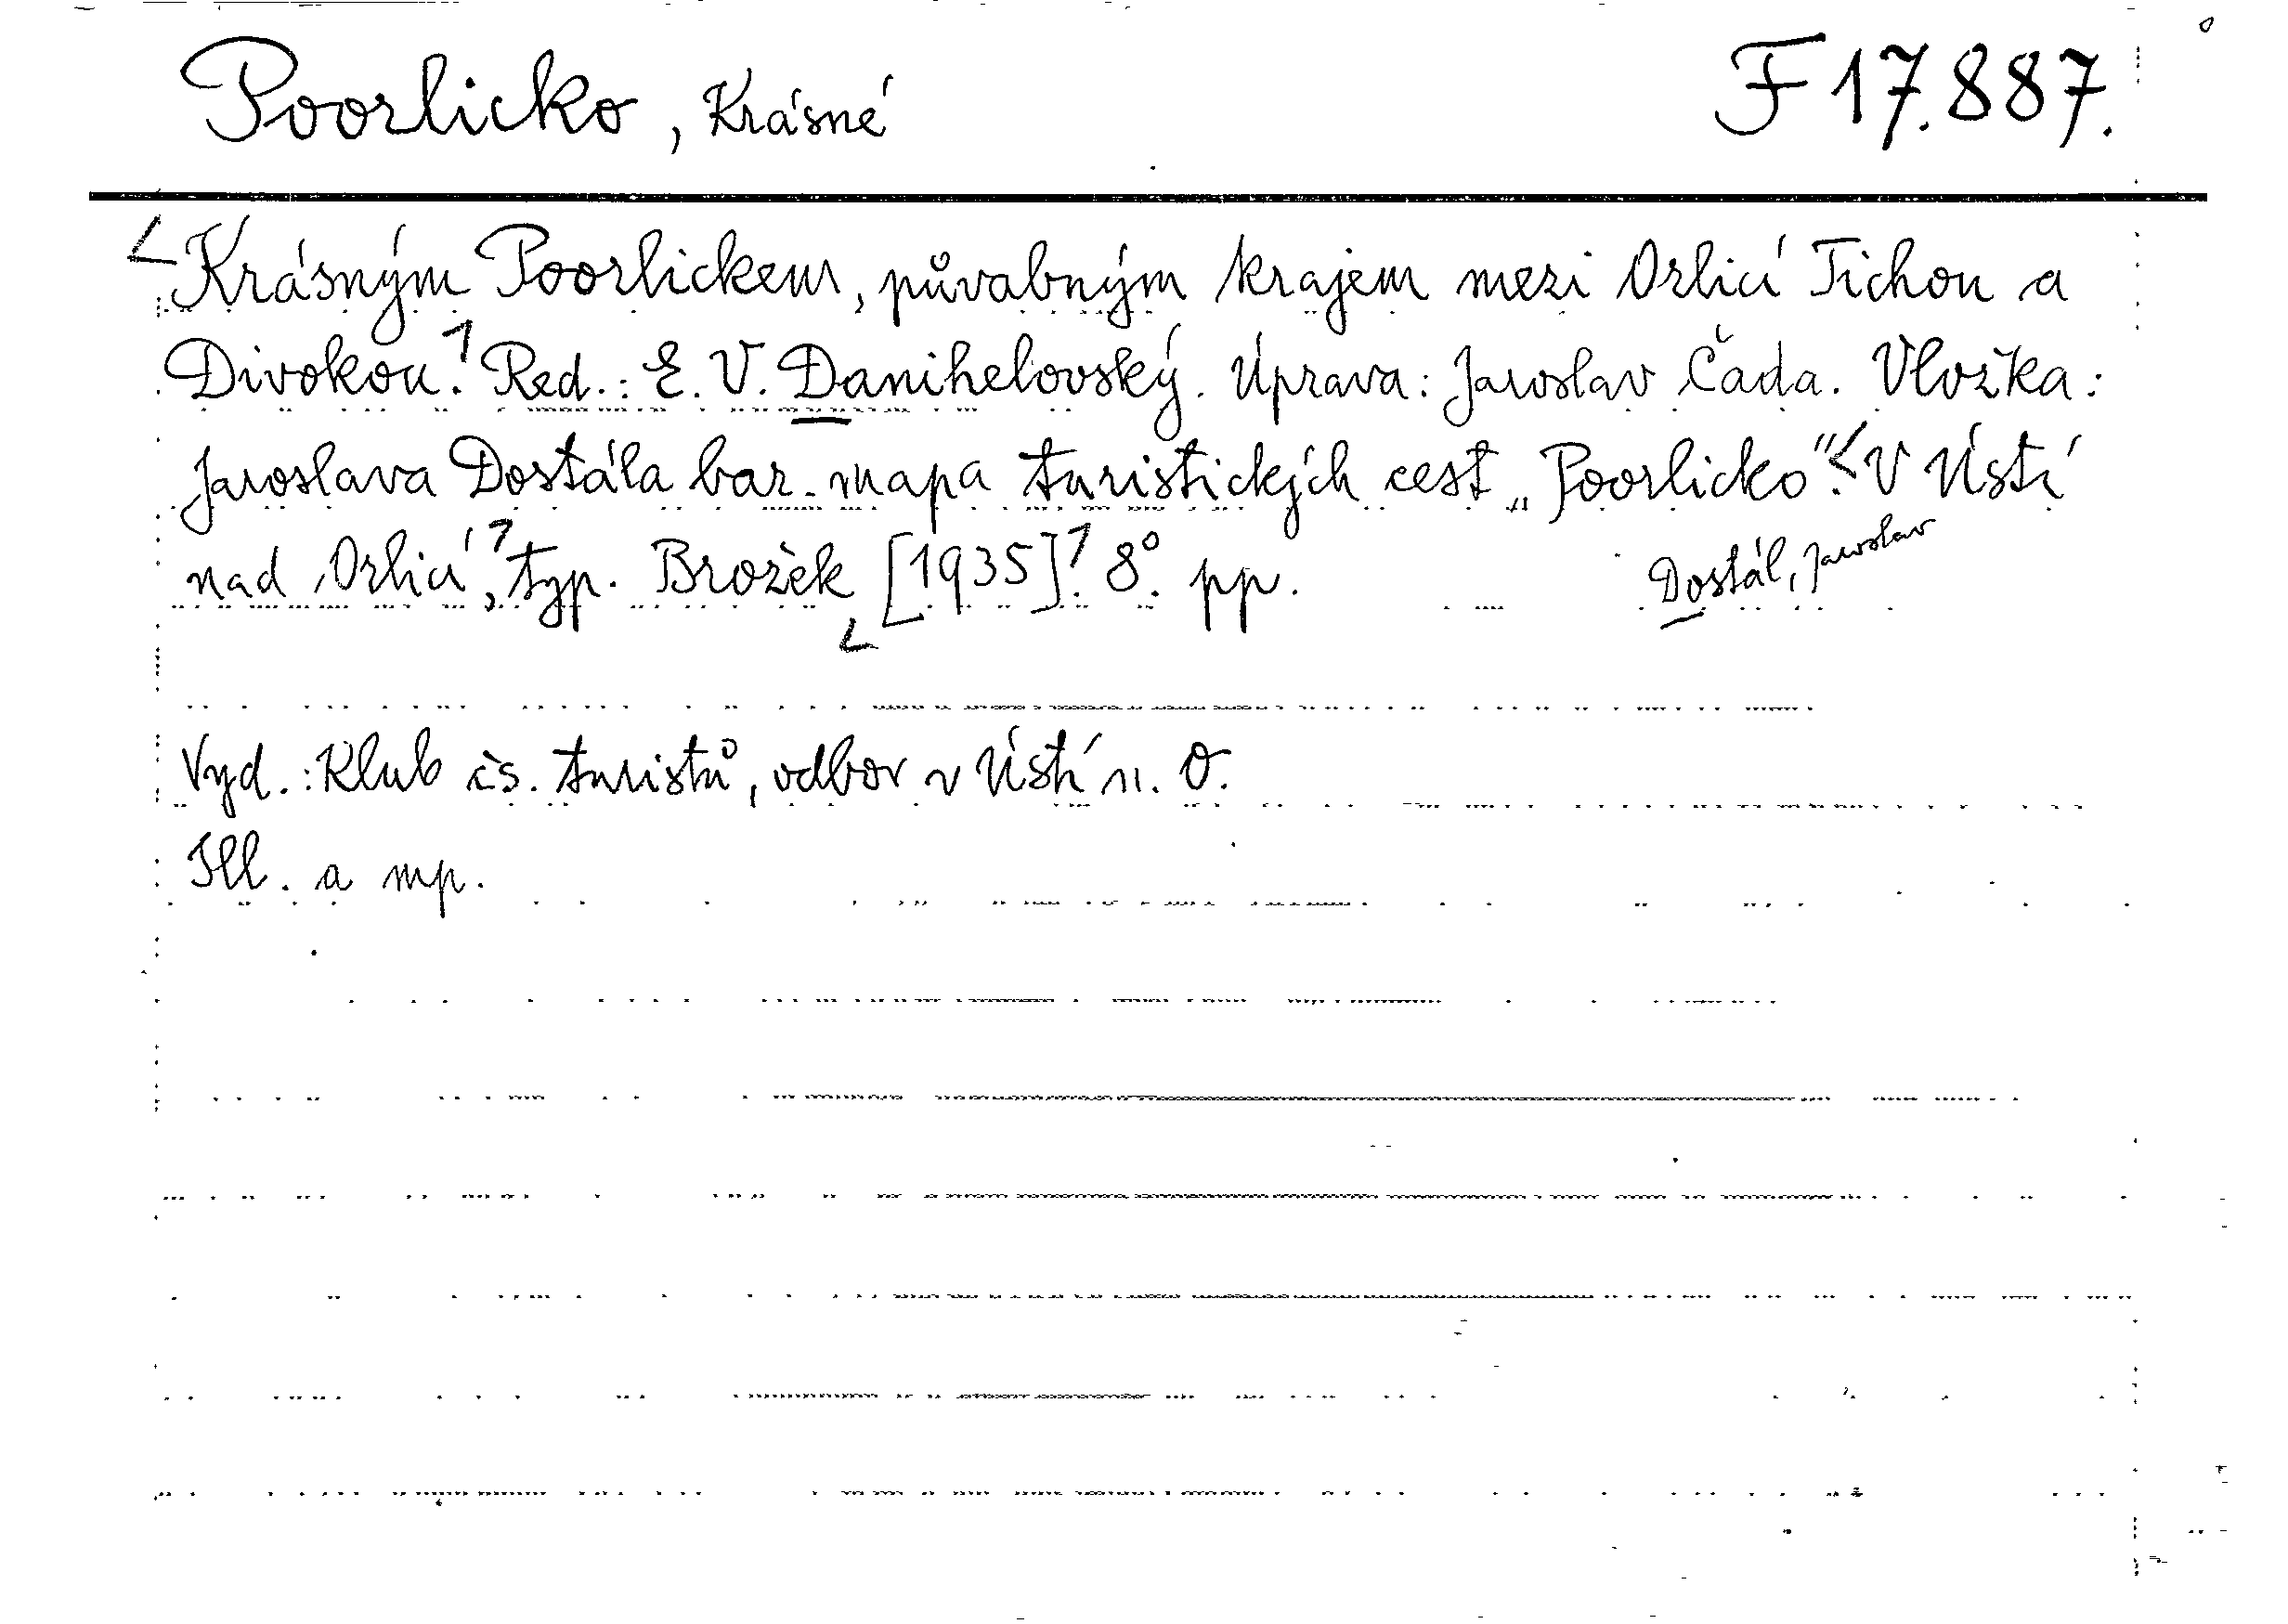 Poorlicko, Krásné F 17.887.
Krásným Poorlickem, půvabným krajem mezi Orlicí Tichou a
Divokou. Red.: E. V. Danihelovský. Úprava: Jaroslav Čada. Vložka:
Jaroslava Dostála bar. mapa turistických cest „Poorlicko“. V Ústí
nad Orlicí, typ. Brožek [1935]. 8°. pp.
Dostál, Jaroslav
Vyd.: Klub čs. turistů, odbor v Ústí n. O.
Ill. a mp.